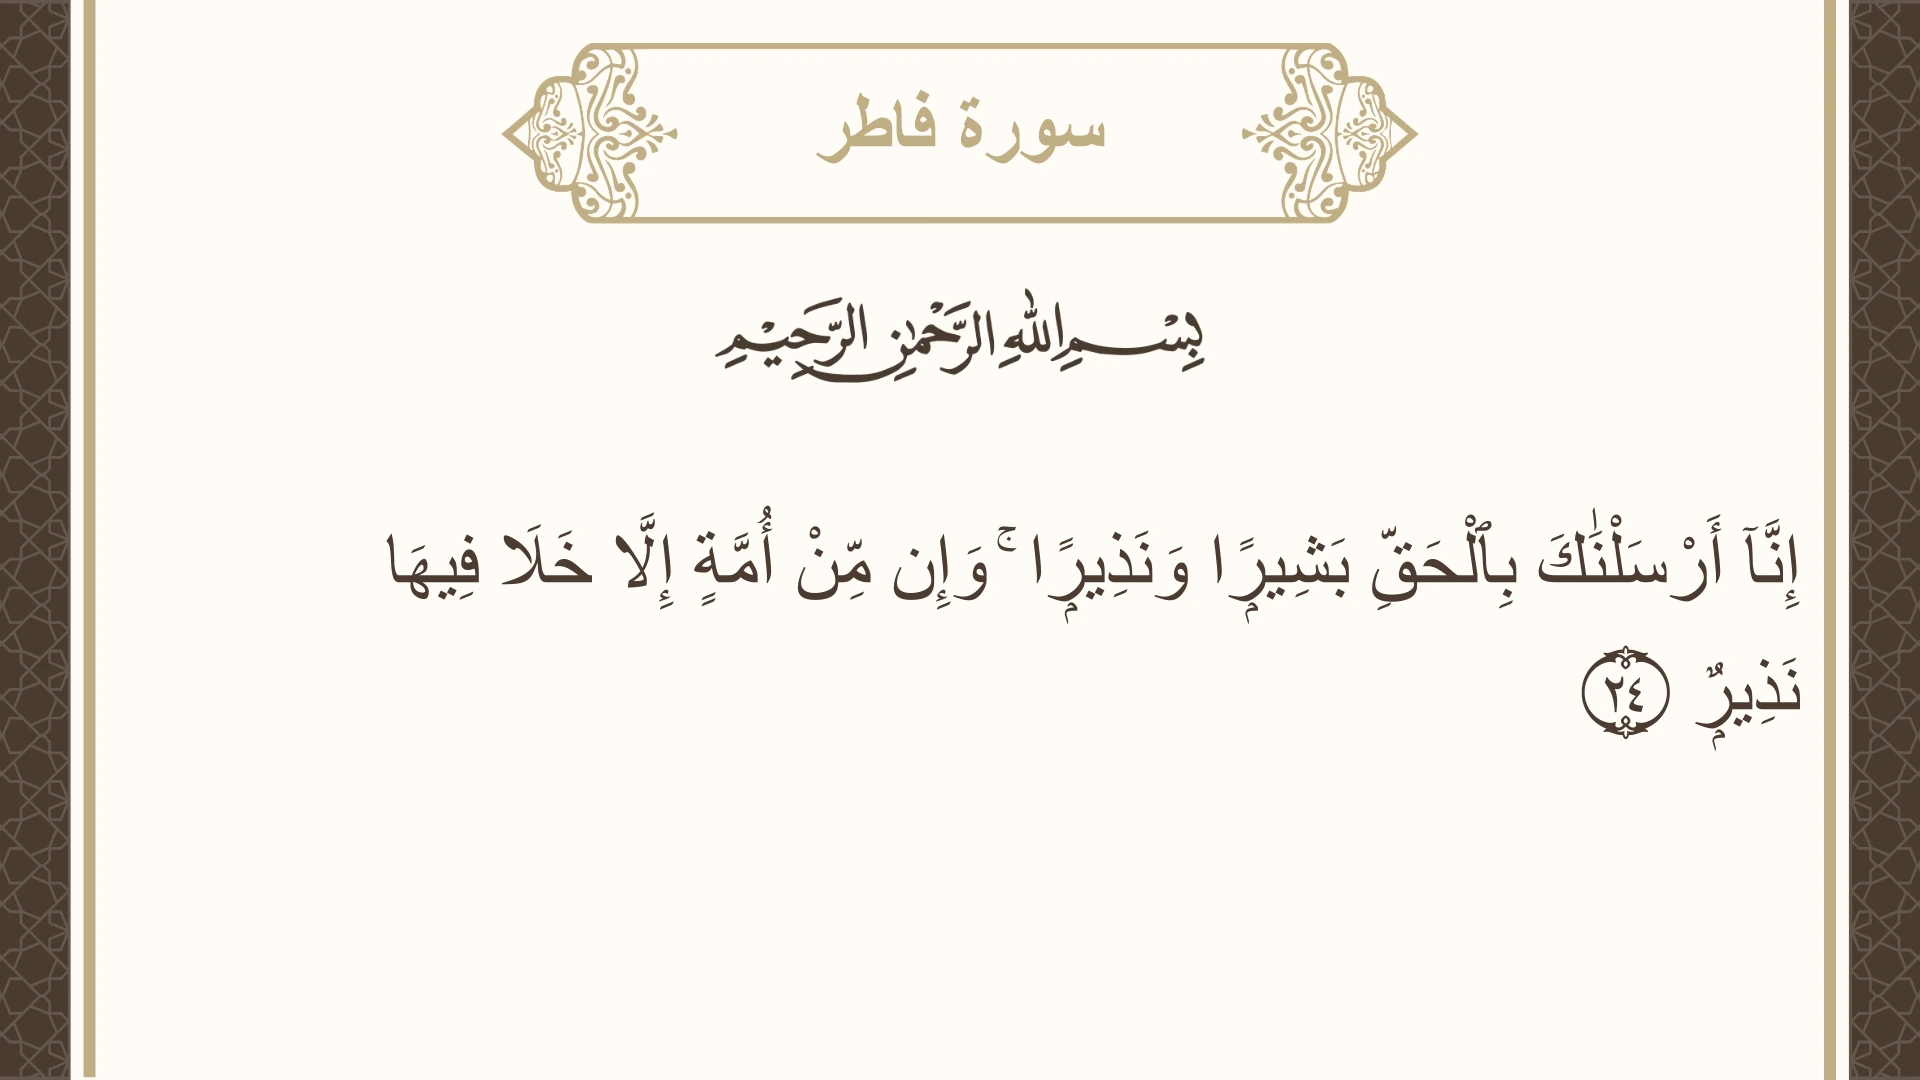 سورة فاطر
بِسْمِ اللهِ الرَّحْمٰنِ الرَّحِيْمِ
إِنَّآ أَرْسَلْنَٰكَ بِٱلْحَقِّ بَشِيرًۭا وَنَذِيرًۭا ۚ وَإِن مِّنْ أُمَّةٍ إِلَّا خَلَا فِيهَا
نَذِيرٌۭ ٢٤